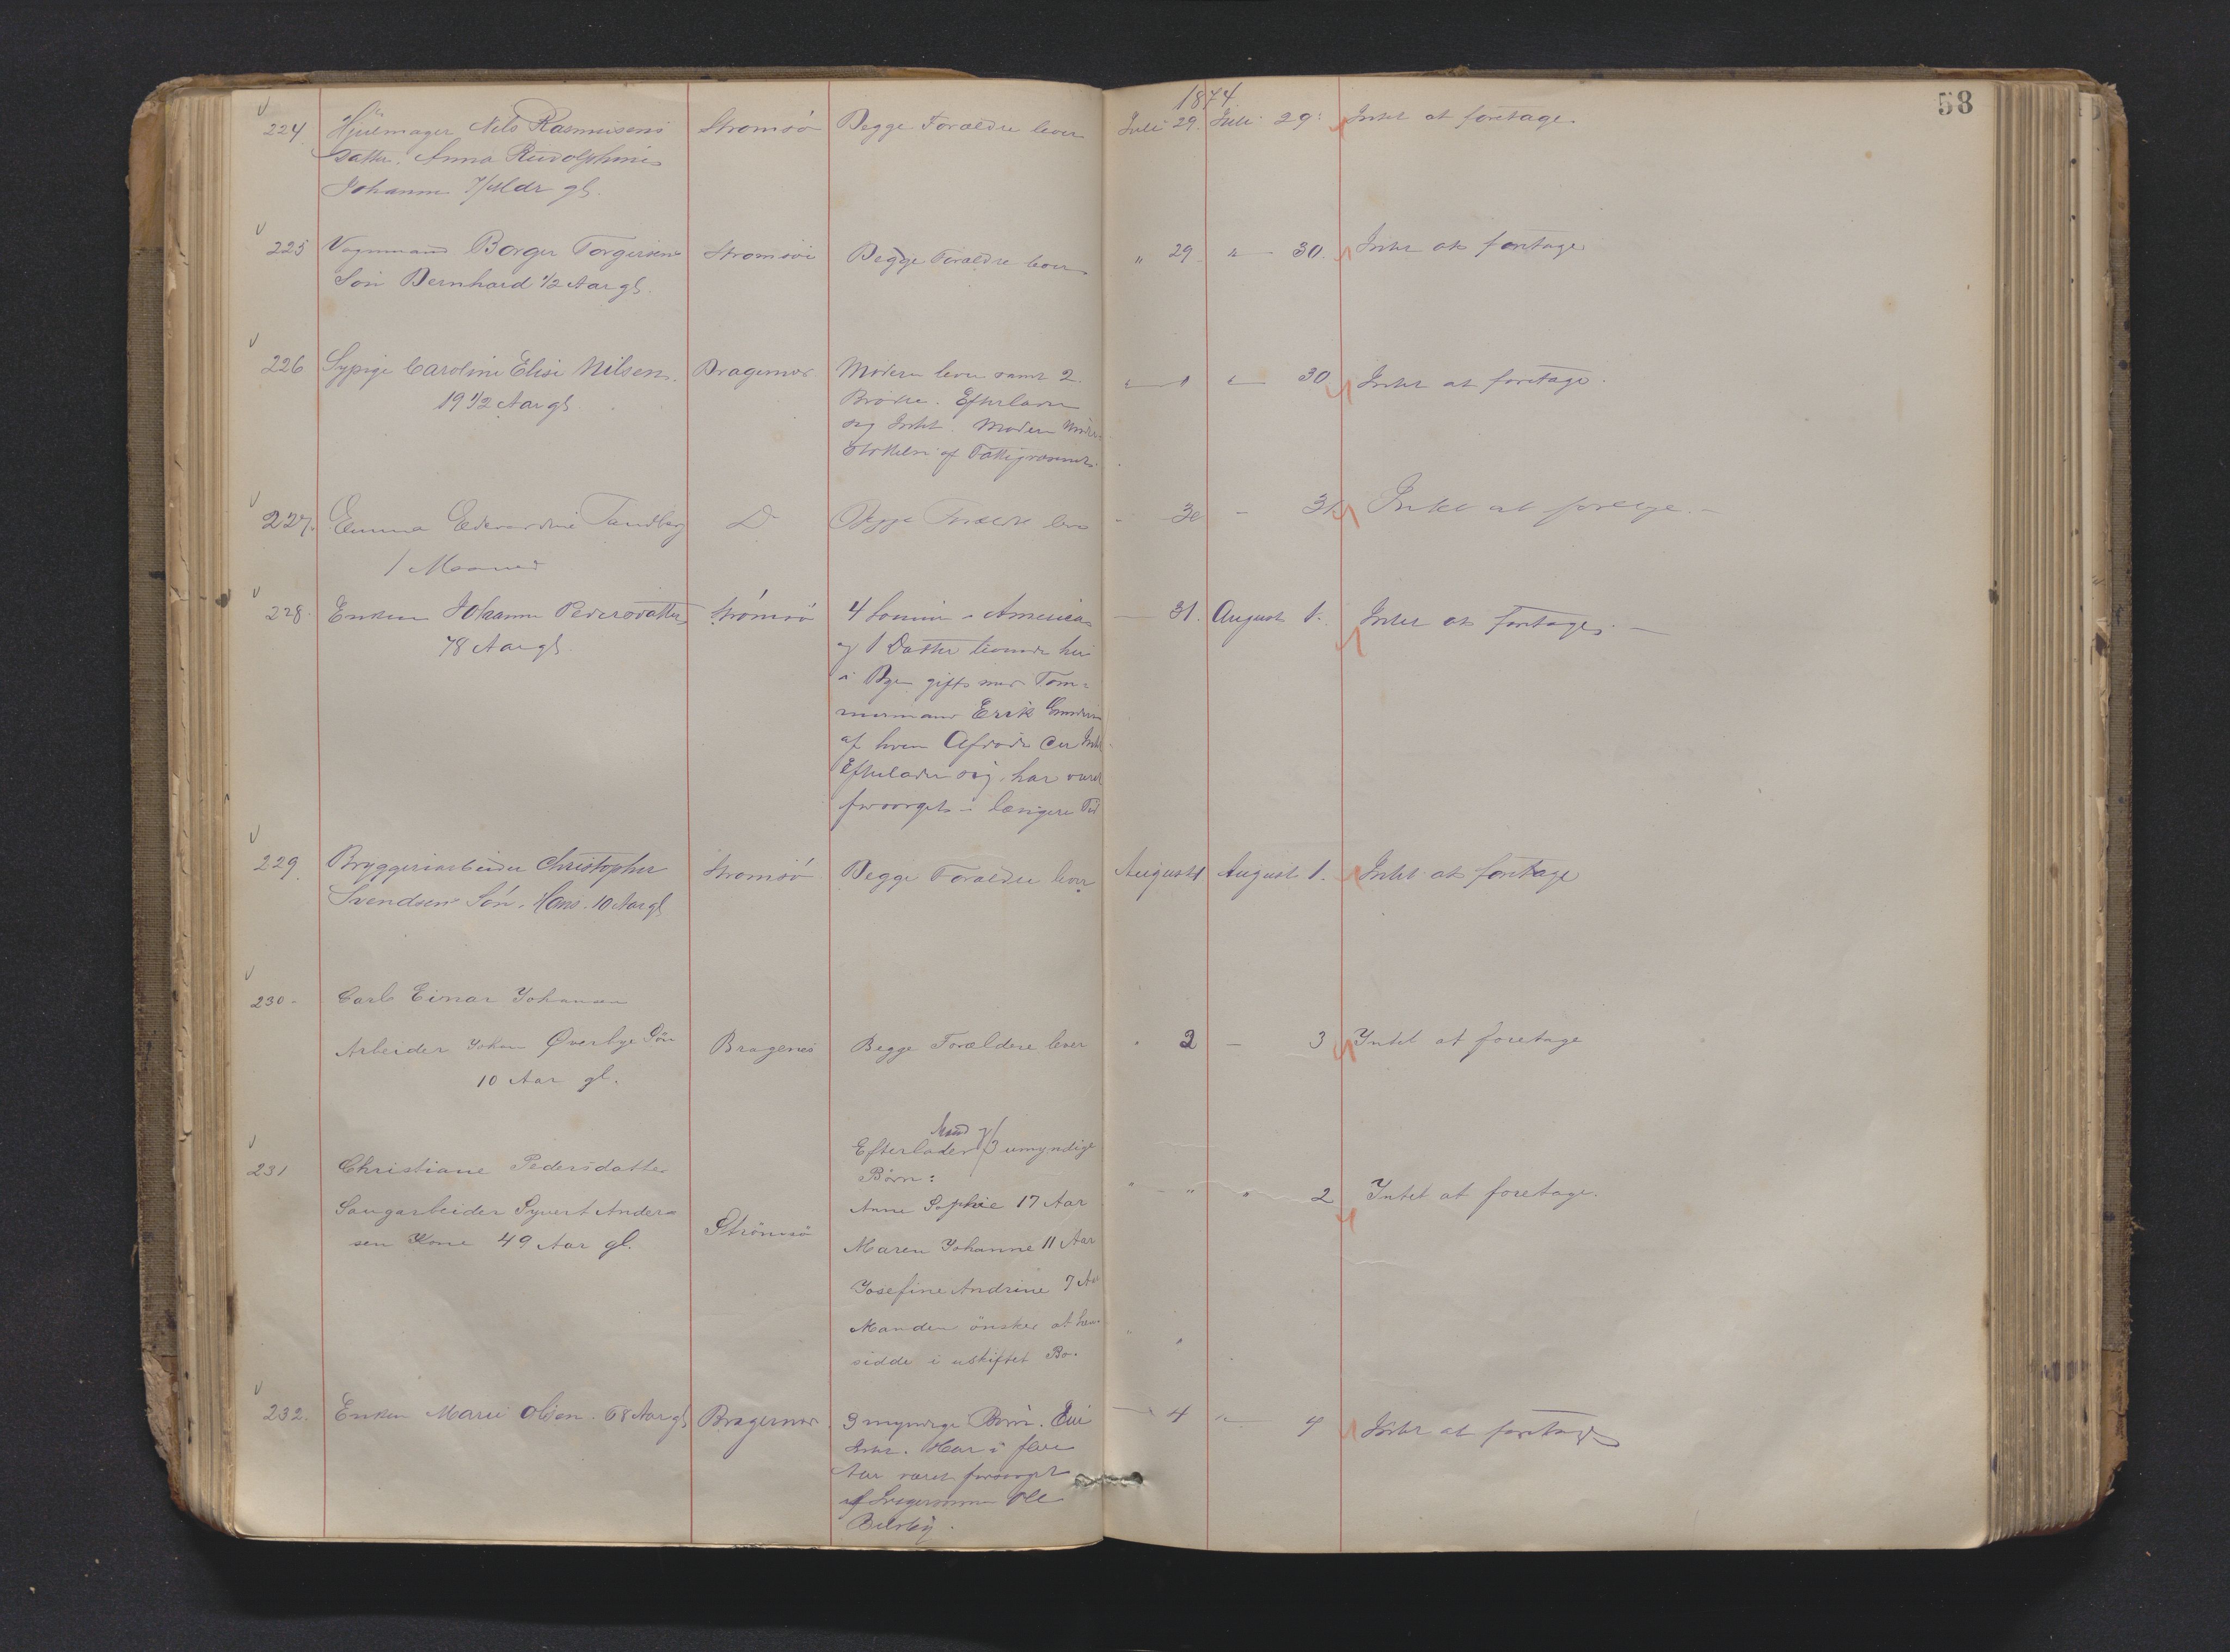 1874
58
224 Hjulmager Nils Rasmussens Strømsö Begge Forældre lever Juli 29. Juli 29. Intet at foretage.
Datter. Anna Rudolphine
Johanne 7 Mdr gl.
225 Vognmand Borger Torgersens Strømsö Begge Forældre lever " 29 " 30. Intet at foretage
Sön Bernhard 1/2 Aar gl.
226 Sypige Caroline Elise Nilsen. Bragernæs Moderen lever samt 2 " " " 30 Intet at foretage.
19 1/2 Aar gl. Brødre. Efterlader
sig Intet. Moderen
af Fattigvæsenet.
227. Emma Edvardine Tandberg D Begge Forældre lever - 30 - 31 Intet at foretage. -
1 Maaned
228. Enken Johanne Pedersdatter Strömsö 4 Sønner i America — 31. August 1. Intet at foretage. —
78 Aar gl. og 1 Datter levende her
i Byen gift med Töm=
mermand Erik
af hvem Afdøde er
Efterlader sig. har været
forsørget i længere Tid
229. Bryggeriarbeider Christopher Strömsö Begge Forældre lever August 1 August 1. Intet at foretage
Svendsens Sön. Hans. 10 Aar gl
230 - Carl Einar Johansen
Arbeider Johan Øverbye Sön Bragernes Begge Forældere lever " 2 — 3 Intet at foretage
10 Aar gl.
Mand og
231 Christiane Pedersdatter Efterlader 3 umyndige
Børn: " - " " 2 Intet at foretage.
Saugarbeider Syvert Ander= Strömsö Anne Sophie 17 Aar
sen Kone 49 Aar gl. Maren Johanne 11 Aar
Josefine Andrine 7 Aar
Manden önsker at hen=
sidde i uskiftet Bo.
232. Enken Marie Olsen. 68 Aar gl Bragernæs. 3 myndige Børn. Eier — 4 " 4 Intet at foretage
Intet. Har i flere
Aar været forsørget
af Svigersønnen Ole